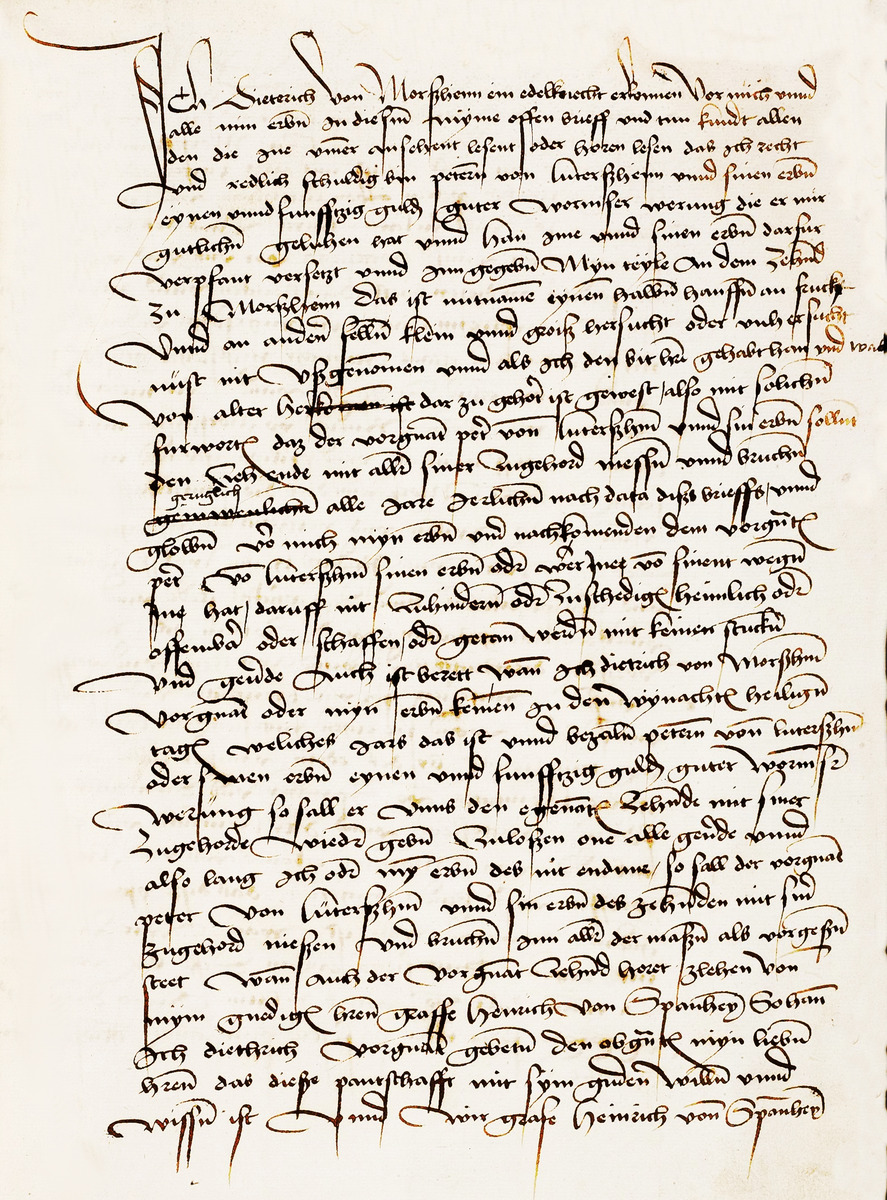 Ich Dieterich von Morßheim ein edelknecht erkennen vor mich vnnd
alle min erbn̄ In diesm̄ myme offen brieff vnd tun kundt allen
den die Ine ymer ansehent lesent oder horen lesen das Ich recht
vnd redlich schuldig bin petern von luterßheim vnnd sinen erbn̄
eynen vnnd funfftzig guldn̄ guter wormser werung die er mir
gutlichn̄ geluhen hat vnnd han Ime vnnd sinen erbn̄ darfur
verpfant versetzt vnnd Inngegebn̄ Myn teyle An dem Zehnd
zu Morßheim Das ist mitnamē eynen halbn̄ hauffn̄ an frucht
Vnnd an andern̄ felln̄ klein vnnd groiß hersucht oder vnhersucht
nust nit vßgenomen vnnd als Ich den bit her gehabt han vnd was
von alter her dar zu gehort ist gewest, also mit solichn̄
furwortn̄ daz der vorgnāt pet̄ von luterßhm̄ vnnd sin erbn̄ sollnt
den Zehende mit allr̄ siner Zugehord niessn̄ vnnd bruchn̄
geruglich
alle Jare Jerlichn̄ nach data diß brieffs, vnnd
globn̄ vō mich myn erbn̄ vnd nachkōmenden dem vorgn̄tn̄
pet̄ vō luterßhm̄ sinen erbn̄ odr̄ wer Inne vō sinent wegn̄
Ine hat, daruff nit Zuhindern̄ odr̄ Zuschedign̄ heimlich odr̄
offenbār oder schaffen, odr̄ getan werdn̄ mit keinen stuckn̄
vnd geūde Auch ist berett wan̄ Ich dietrich von Morßhm̄
vorgnāt oder myn erbn̄ kemen̄ In den wynachtn̄ heilign̄
tagn̄ weliches Jars das ist vnnd bezaln̄ petern̄ von̄ luterßhn̄
oder sinen erbn̄ eynen vnnd funfftzig guldn̄ guter worm̄sr̄
werung so sall er vnns den egenātn̄ Zehnde mit siner
Zugehorde wiedr̄ gebn̄ Zuloßen one alle geūde vnnd
also lang Ich odr̄ my̅ erbn̄ des nit endune, so sall der vorgnāt
peter von lüterßhm̄ vnnd sin erbn̄ des zehn̄den mit sin̄
zugehord nießen vnd bruchn̄ Inn allr̄ der maßn̄ als vorgesn̄
steet wan̄ Auch der vorgnāt Zehnd horet zlehen von
mym gnedign̄ hren̄ graffe Henrich von Spanheÿ So han̄
Ich diethrich vorgnāt gebetn̄ den obgn̄tn̄ myn liebn̄
hren̄ das dieße pantschafft mit sym guden̄ willn̄ vnnd
wissn̄ ist Vnnd Wir grafe Heinrich von̄ Spanheÿ